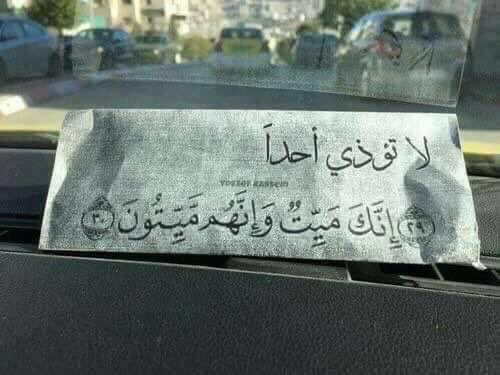 لا تؤذي أحداً
YOSSEF KASSEM
﴿٢٩﴾ إِنَّكَ مَيِّتٌ وَإِنَّهُم مَّيِّتُونَ ﴿٣٠﴾